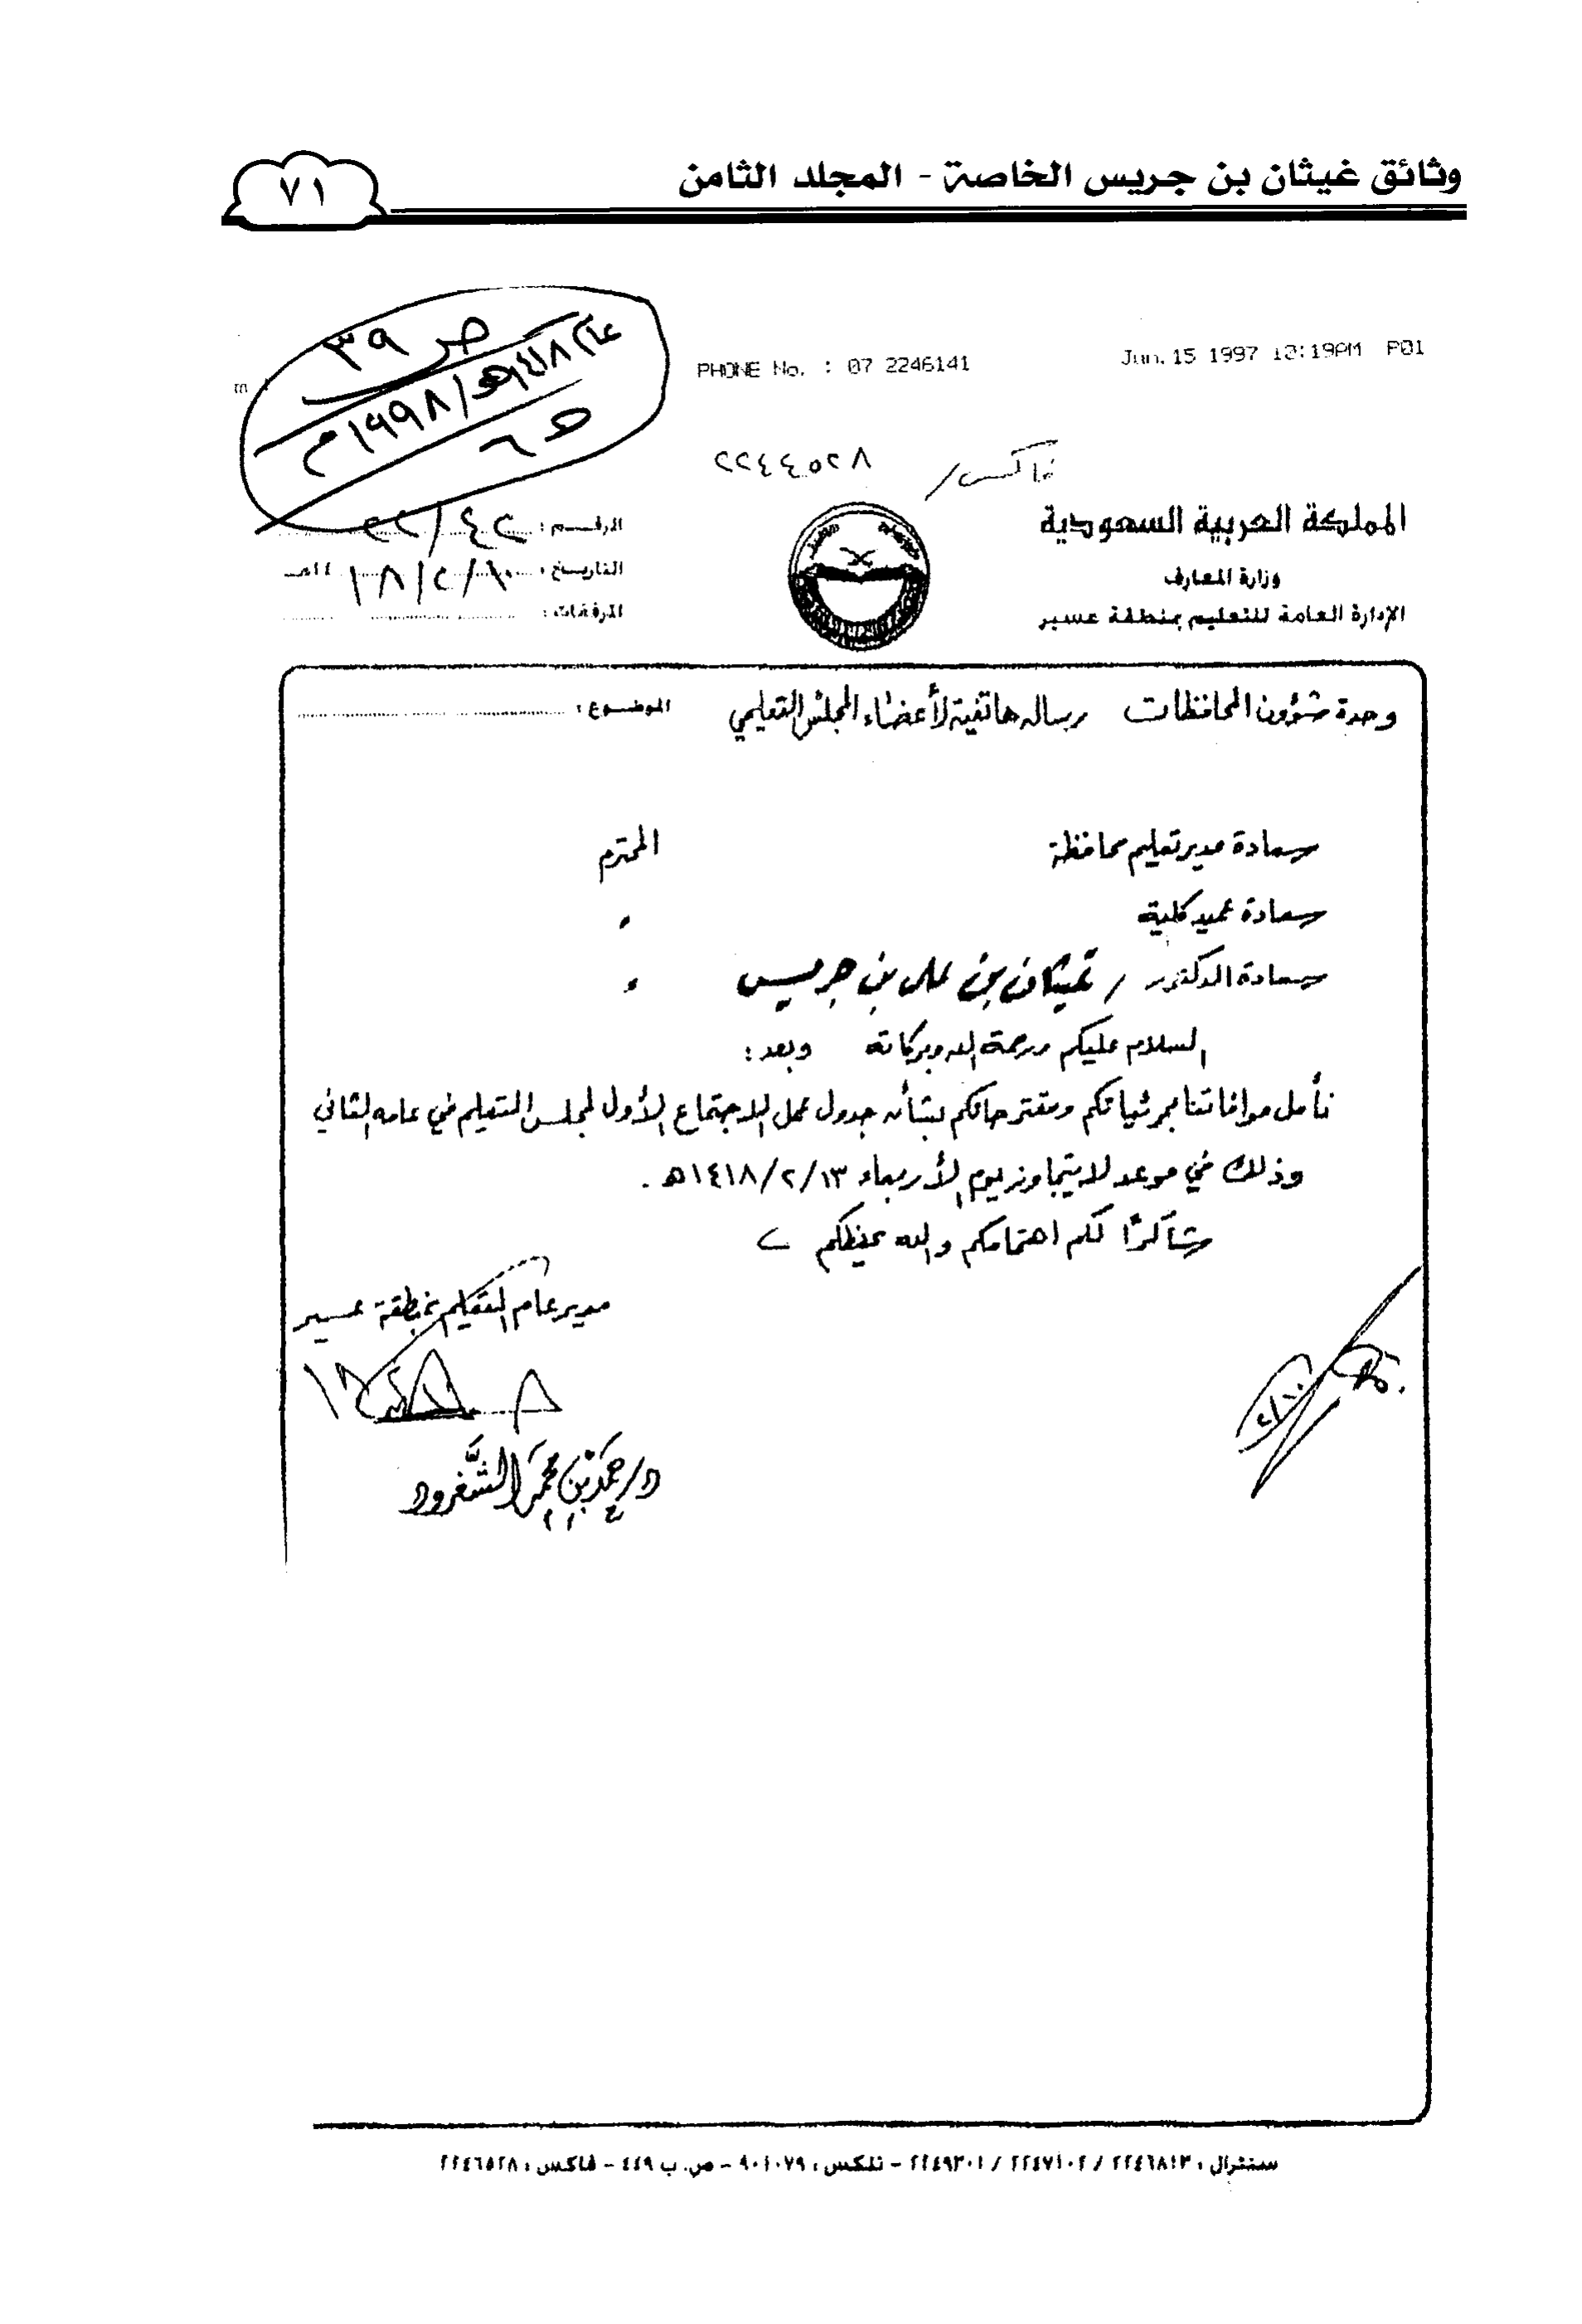 وثائق غيثان بن جريس الخاصة - المجلد الثامن
٧١
PHONE No. : 07 2246141
Jun.15 1997 10:19AM P01
ص ٣٩
عام ١٤١٨هـ/١٩٩٨م
فاكس/ ٨٢٥٤٤٢٢
المملكة العربية السعودية
وزارة المعارف
الإدارة العامة للتعليم بمنطقة عسير
الرقم : ٤٢/٢٢
التاريخ : ١٨/٢/١٠ ١٤هـ
المرفقات :
وحدة شؤون المحافظات رسالة هاتفية لأعضاء المجلس التعليمي
الموضوع :
سعادة مدير تعليم محافظة المحترم
سعادة عميد كلية
سعادة الدكتور / غيثان بن علي بن جريس
السلام عليكم ورحمة الله وبركاته وبعد :
نأمل موافاتنا بمرئياتكم ومقترحاتكم بشأن جدول عمل الاجتماع الأول لمجلس التعليم في عامه الثاني
وذلك في موعد لا يتجاوز يوم الأربعاء ١٤١٨/٢/١٣هـ .
شاكرًا لكم اهتمامكم والله يحفظكم
مدير عام التعليم بمنطقة عسير
د/ حمد بن محمد الشغرود
٢/١٠
سنترال : ٢٢٤٦٨١٣ / ٢٢٤٧١٠٢ / ٢٢٤٩٣٠١ - تلكس : ٩٠١٠٧٩ - ص. ب ٤٤٩ - فاكس : ٢٢٤٦٥٢٨